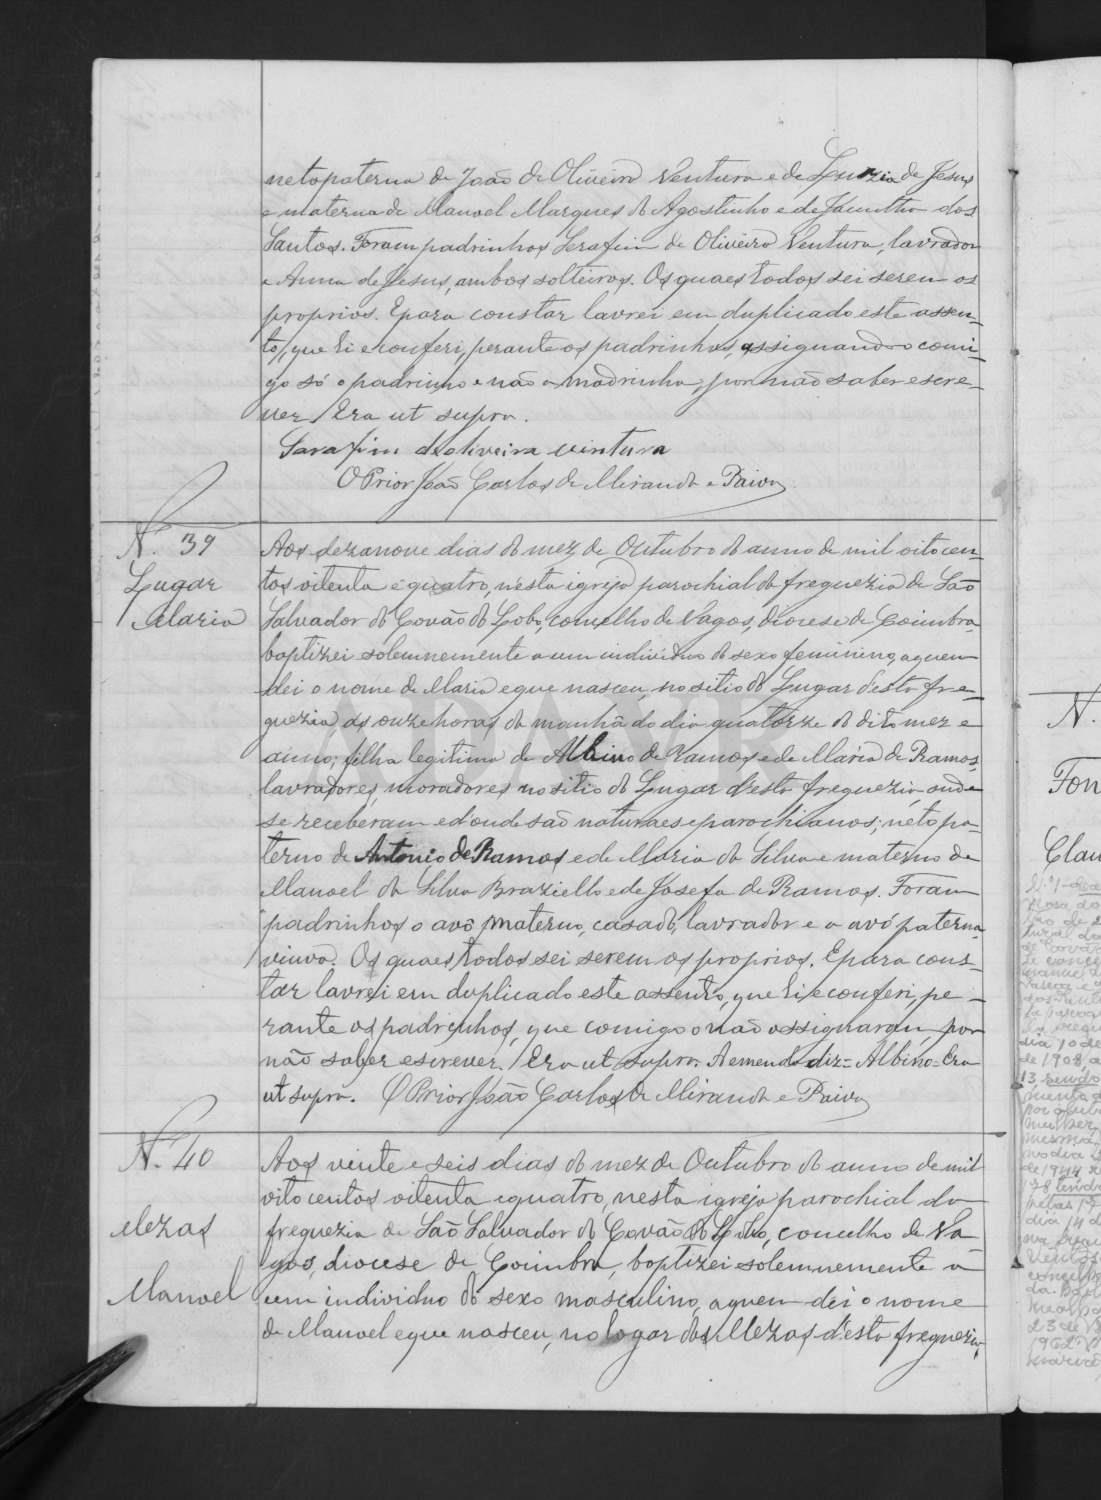 neta paterna de João de Oliveira Ventura e de Luzia de Jesus
e materna de Manoel Marques do Agostinho e de Jacintha dos
Santos. Foram padrinhos Serafim de Oliveira Ventura, lavrador
e Anna de Jesus, ambos solteiros. Os quaes todos sei serem os
proprios. E para constar lavrei em duplicado este assen-
to, que li e conferi, perante os padrinhos, assignando comi-
go só o padrinho e não a madrinha, por não saber escre-
ver. Era ut supra.
Sarafim de oliveira ventura
O Prior João Carlos de Miranda e Paiva
N.º 39
Lugar
Maria
Aos dezanove dias do mez de Outubro do anno de mil oitocen-
tos oitenta e quatro, nesta igreja parochial da freguezia de São
Salvador do Covão do Lobo, concelho de Vagos, diocese de Coimbra,
baptizei solemnemente a um individuo do sexo feminino, a quem
dei o nome de Maria e que nasceu, no sitio do Lugar d'esta fre-
guezia ás onze horas da manhã do dia quatorze do dito mez e
anno; filha legitima de Albino de Ramos e de Maria de Ramos,
lavradores, moradores no sitio do Lugar d'esta freguezia, onde
se receberam e d'onde são naturaes e parochianos; neto pa-
terno de Antonio de Ramos e de Maria da Silva e materno de
Manoel da Silva Braziello e de Josefa de Ramos. Foram
padrinhos o avô materno, casado, lavrador e a avó paterna,
viuva. Os quaes todos sei serem os proprios. E para cons-
tar lavrei em duplicado este assento, que li e conferi, pe-
rante os padrinhos, que comigo o não assignaram, por
não saber escrever. Era ut supra. A emenda diz = Albino = Era
ut supra. O Prior João Carlos de Miranda e Paiva
N.º 40
Mezas
Manoel
Aos vinte e seis dias do mez de Outubro do anno de mil
oitocentos oitenta e quatro, nesta igreja parochial da
freguezia de São Salvador do Covão do Lobo, concelho de Va-
gos, diocese de Coimbra, baptizei solemnemente a
um individuo do sexo masculino, a quem dei o nome
de Manoel e que nasceu, no logar das Mezas d'esta freguezia,
N.
Fon
Clau